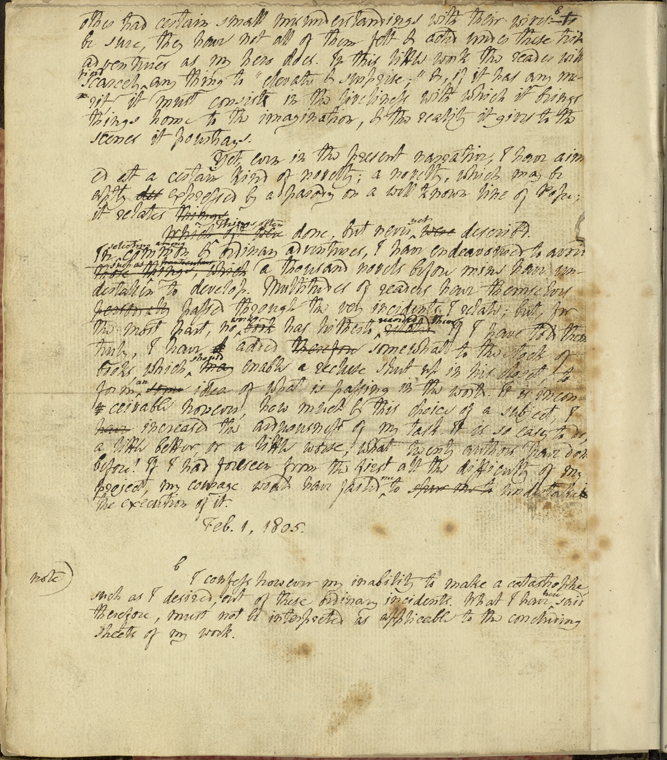 other had certain small misunderstandings with their wives: b to
be sure, they have not all of them felt & acted under these trite
adventures as my hero does. In this little work the reader will
scarcely find any thing to "elevate & surprise;" &, if it has any me-
rit it must consist in the liveliness with which it brings
things home to the imagination, & the reality it gives to the
scenes it pourtrays.
Yet even in the present narrative, I have aim
ed at a certain kind of novelty; a novelty, which may be
aptly expressed by a parody on a well known line of Pope;
it relates
Things often done, but never yet described.
In selecting among common & ordinary adventures, I have endeavoured to avoid
such as a thousand novels before mine have un-
dertaken to develop. Multitudes of readers have themselves
passed through the very incidents I relate; but, for
the most part, no work has hitherto recorded them. If I have told them
truly, I have added somewhat to the stock of
books which should enable a recluse, shut up in his closet, to
form an idea of what is passing in the world. It is incon-
ceivable however, how much by this choice of a subject, I
increased the arduousness of my task. It is so easy to do,
a little better, or a little worse, what twenty authors have done
before! If I had foreseen from the first all the difficulty of my
project, my courage would have failed me to undertake
the execution of it.
Feb. 1, 1805.
note
b I confess however my inability to make a catastrophe
such as I desired, out of these ordinary incidents. What I have here said
therefore, must not be interpreted as applicable to the concluding
sheets of my work.